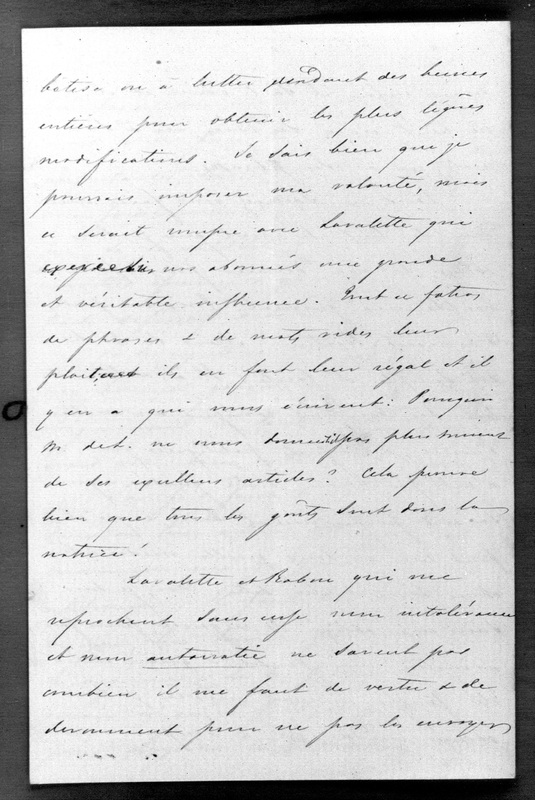 batise ou à lutter pendant des heures
entières pour obtenir les plus légères
modifications. Je sais bien que je
pourrais imposer ma volonté, mais
ce serait rompre avec Lavalette qui
exerce sur nos abonnés une grande
et véritable influence. Tout ce fatras
de phrases & de mots vides leur
plait, ils en font leur régal et il
y en a qui nous écrivent: Pourquoi
M. de L. ne nous donne-t-il pas plus souvent
de ses excellents articles? Cela prouve
bien que tous les goûts sont dans la
nature!
Lavalette et Rabou qui me
reprochent sans cesse mon intolérance
et mon autocratie ne savent pas
combien il me faut de vertu & de
dévouement pour ne pas les envoyer